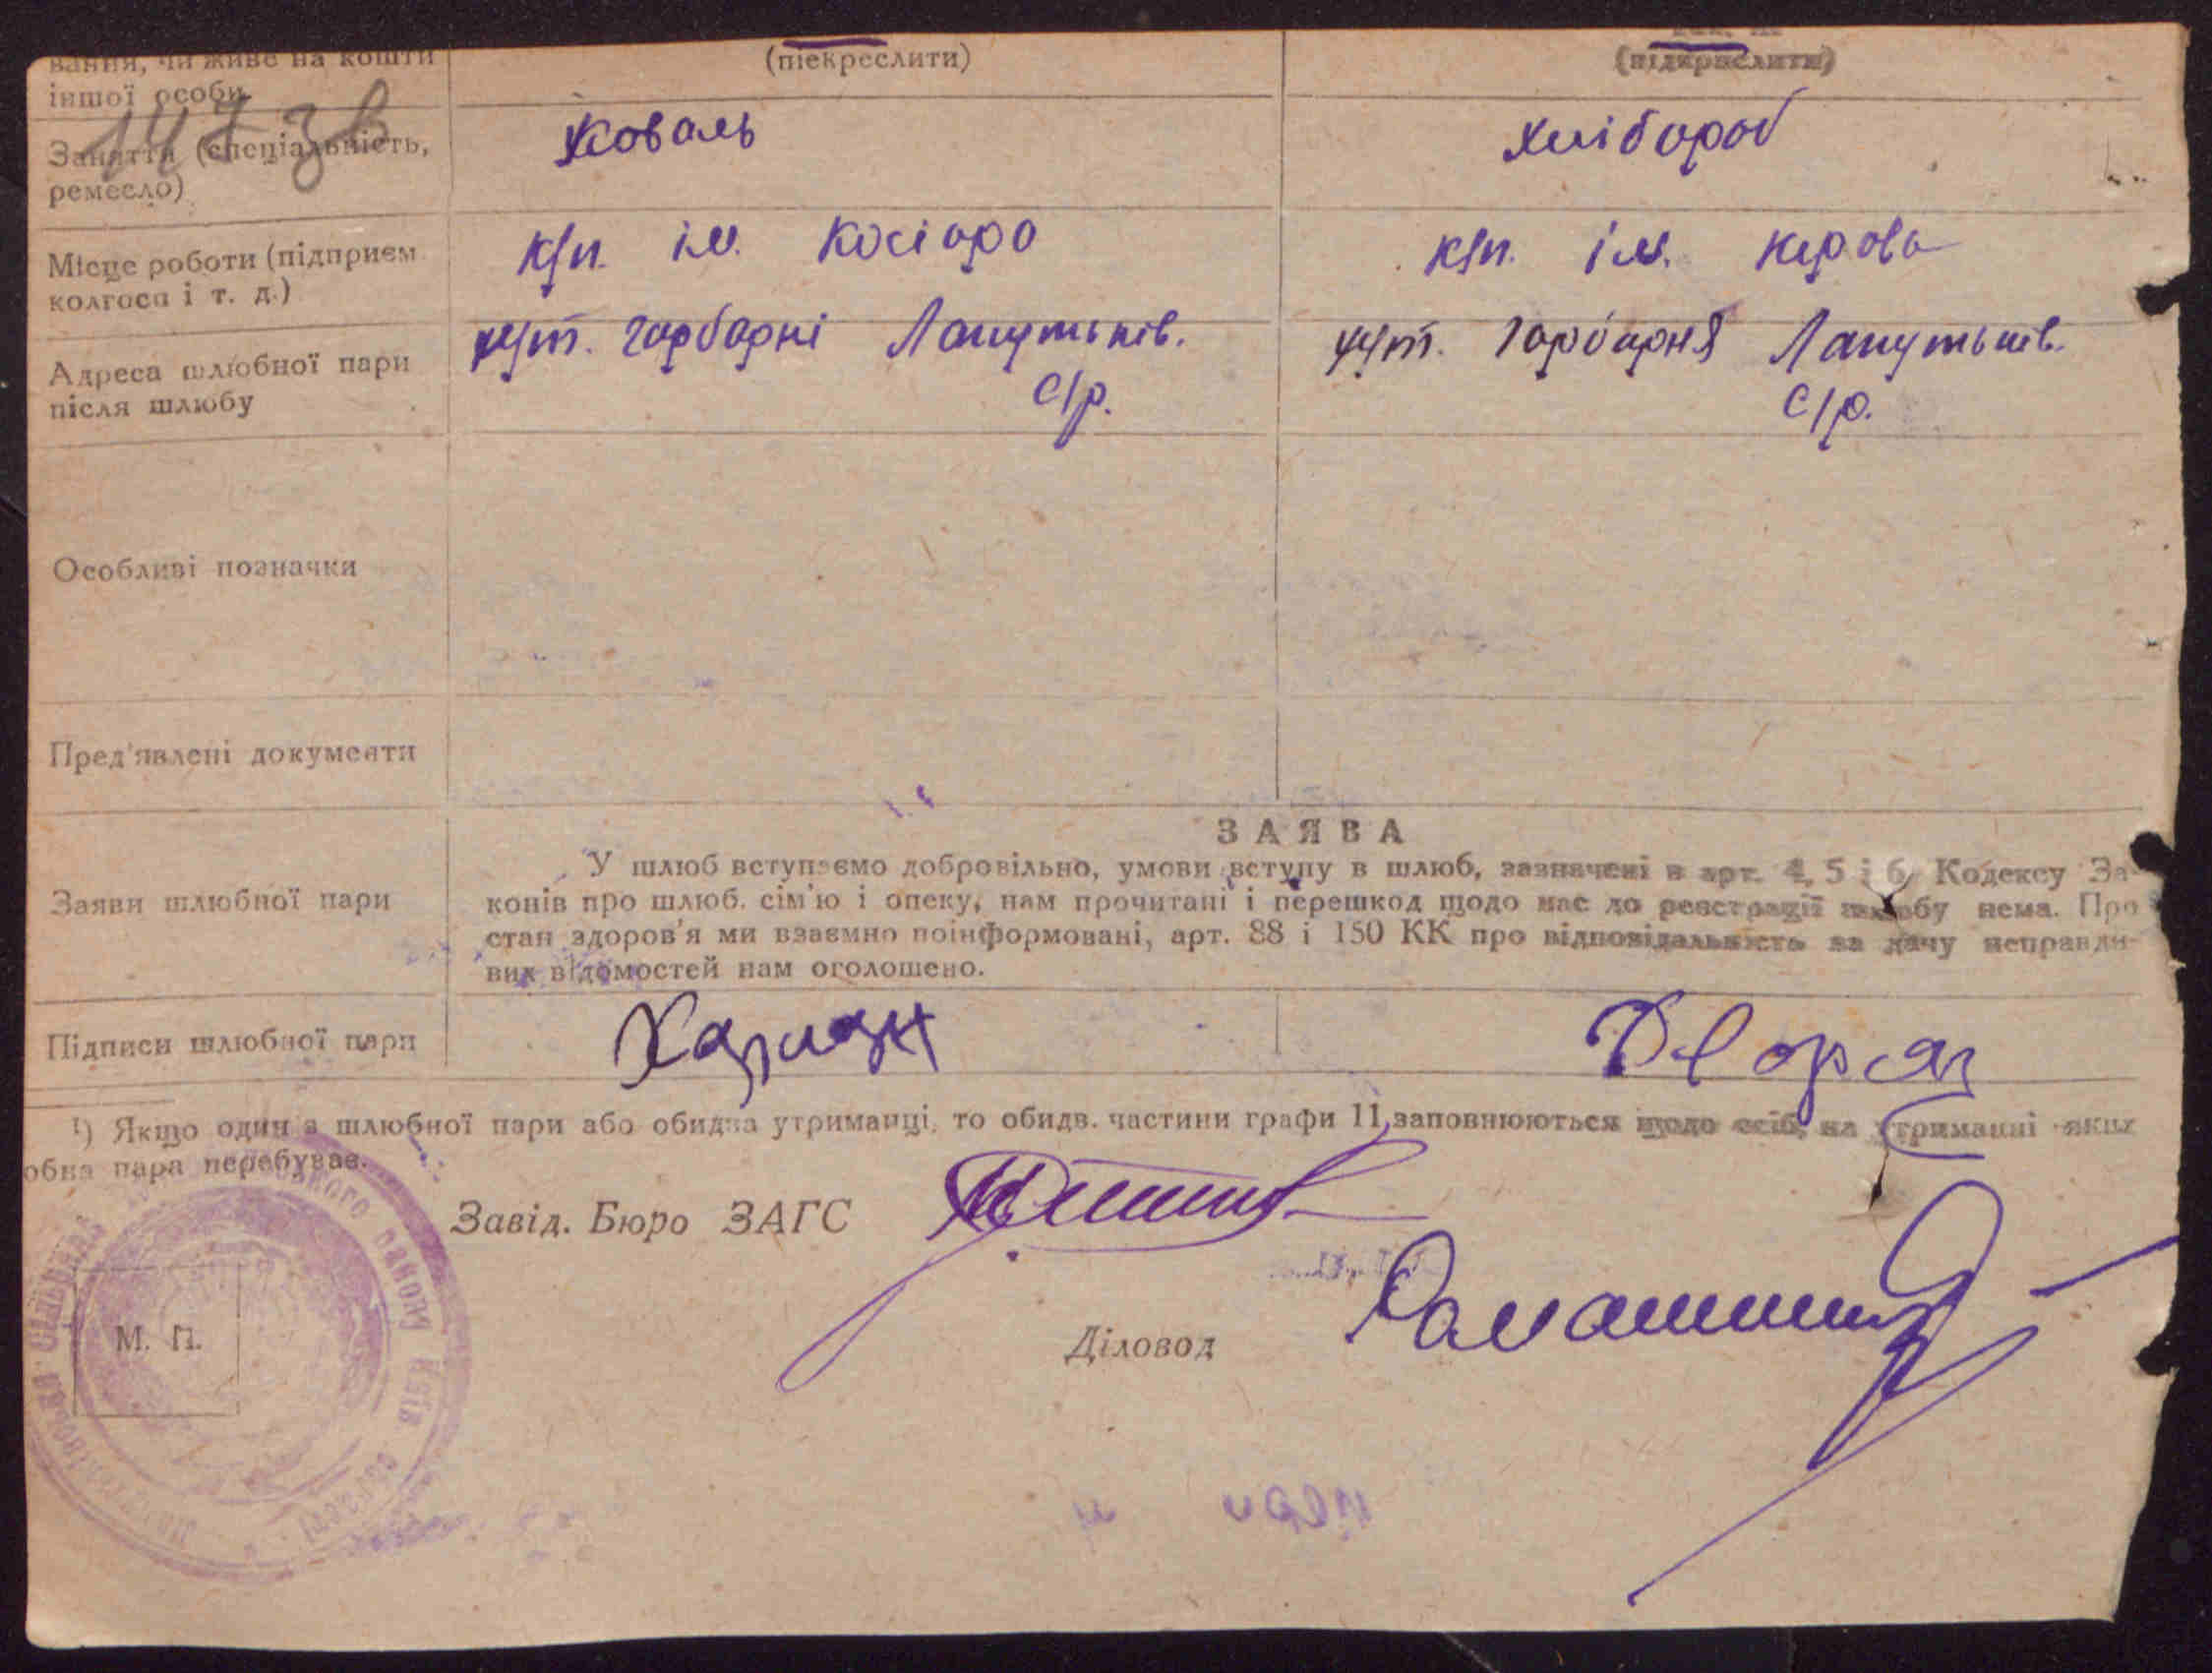 вання, чи живе на кошти
іншої особи
(піекреслити)
(підкрислити)
147 зв
Заняття (спеціальність,
ремесло)
Коваль
Хлібороб
Місце роботи (підприєм
колгосп і т. д.)
к/п. ім. Косіора
к/п. ім. Кірова
Адреса шлюбної пари
після шлюбу
хут. Гарбарні Лапутьків.
с/р.
хут. Гарбарня Лапутьків.
с/р.
Особливі позначки
Пред'явлені документи
ЗАЯВА
Заяви шлюбної пари
У шлюб вступаємо добровільно, умови вступу в шлюб, зазначені в арт. 4, 5 і 6 Кодексу За-
конів про шлюб. сім'ю і опеку, нам прочитані і перешкод щодо нас до реєстрації шлюбу нема. Про
стан здоров'я ми взаємно поінформовані, арт. 88 і 150 КК про відповідальність за дачу неправди-
вих відомостей нам оголошено.
Підписи шлюбної пари
Харлан
1) Якщо один з шлюбної пари або обидва утриманці, то обидв. частини графи 11 заповнюються щодо осіб, на утриманні яких
обна пара перебуває.
Завід. Бюро ЗАГС
Діловод
М. П.
району Київ